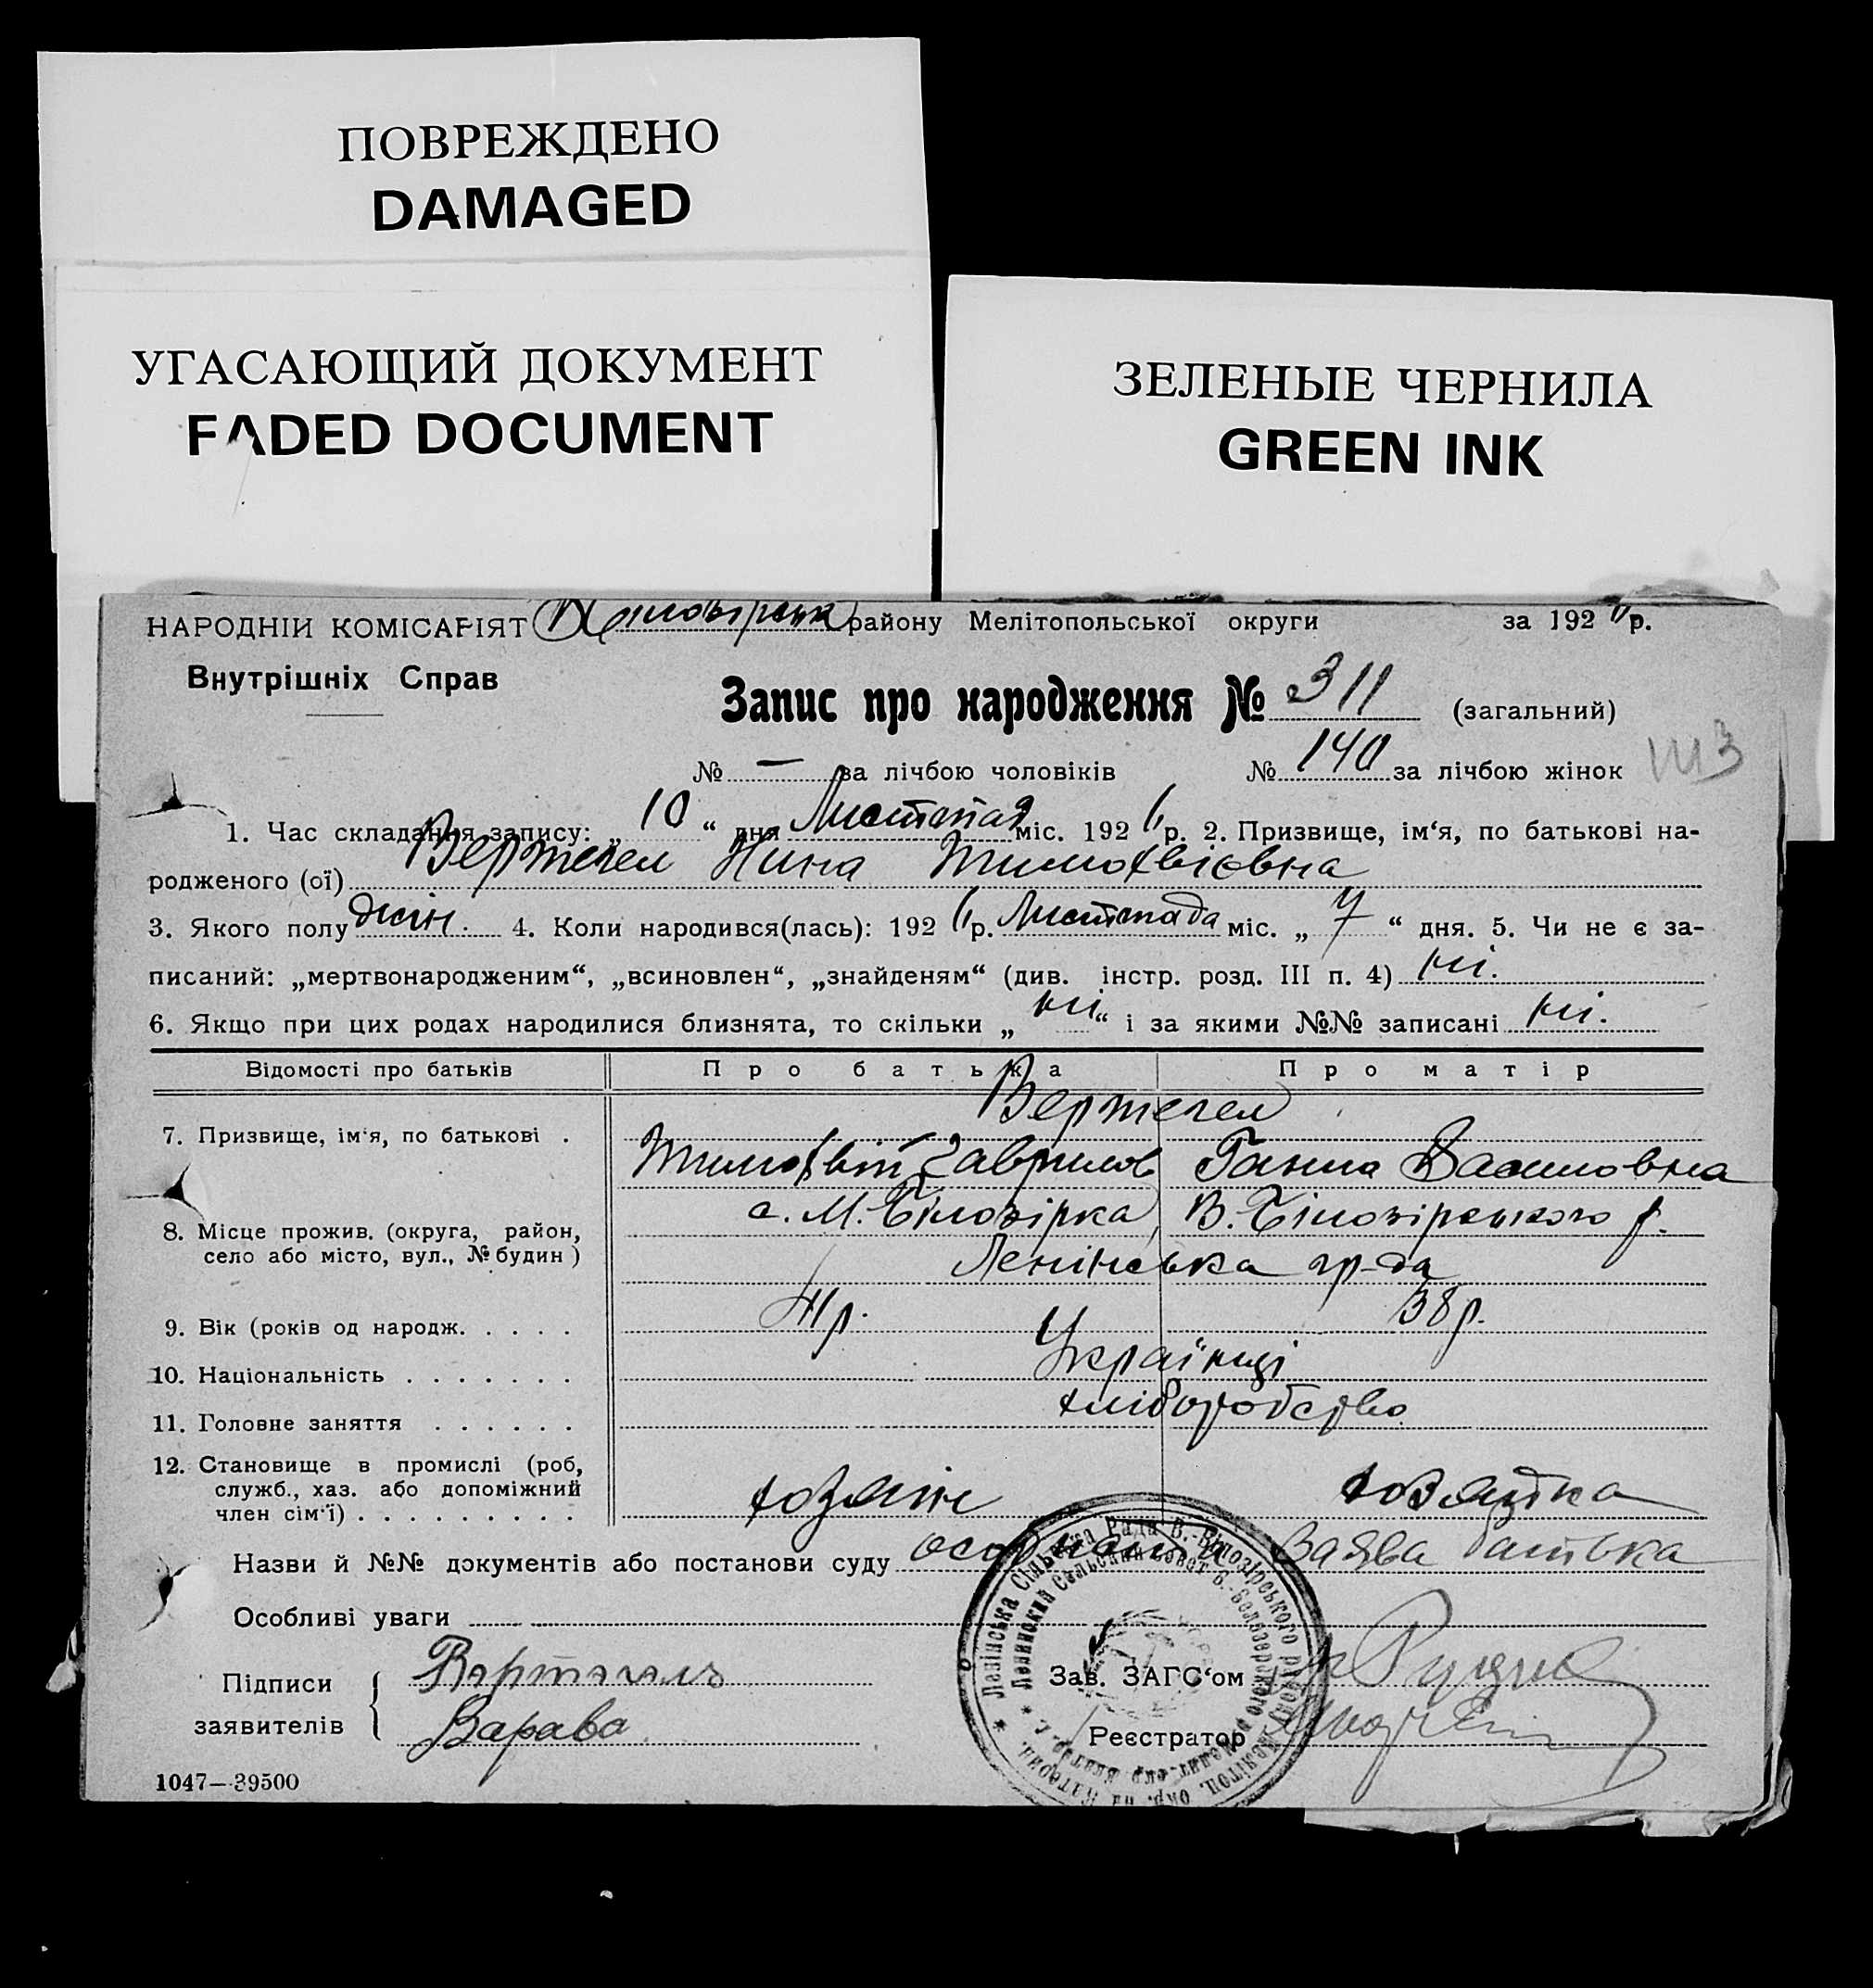 ПОВРЕЖДЕНО
DAMAGED
УГАСАЮЩИЙ ДОКУМЕНТ
FADED DOCUMENT
ЗЕЛЕНЫЕ ЧЕРНИЛА
GREEN INK
НАРОДНІЙ КОМІСАРІЯТ району Мелітопольської округи за 192 р.
Внутрішніх Справ
Запис про народження № 311 (загальний)
№ — за лічбою чоловіків № 140 за лічбою жінок
1. Час складання запису: „ 10 “ дня Листопад міс. 192 р. 2. Призвище, ім‘я, по батькові на-
родженого (ої) Вертегел Нина Тимофвієвна
3. Якого полу жін. 4. Коли народився(лась): 192 р. Листопада міс. „ 7 “ дня. 5. Чи не є за-
писаний: „мертвонародженим“, „всиновлен“, „знайденям“ (див. інстр. розд. III п. 4) ні.
6. Якщо при цих родах народилися близнята, то скільки „ ні “ і за якими №№ записані ні.
Відомості про батьків Про батька Про матір
Вертегел
7. Призвище, ім‘я, по батькові .
Тимофвій Гаврилов Ганна Василовна
с. М. Білозірка, В. Білозірського р.
8. Місце прожив. (округа, район,
село або місто, вул., № будин )
Ленінська
9. Вік (років од народж. . . . . 38 р.
10. Національність . . . . . . . Українці
11. Головне заняття . . . . . . хліборобство
12. Становище в промислі (роб,
служб., хаз. або допоміжний
член сім‘ї) . . . . . . . . . хозяін хозяйка
Назви й №№ документів або постанови суду Заява батька
Особливі уваги
Підписи Вертегель
заявителів Варава
Зав. ЗАГС‘ом
Реєстратор
Ленінська Сільська Рада В.-Білозірського району Мелітоп. окр. на Катерин.
Ленинский Сельский Совет Б.-Белозерского
1047—39500